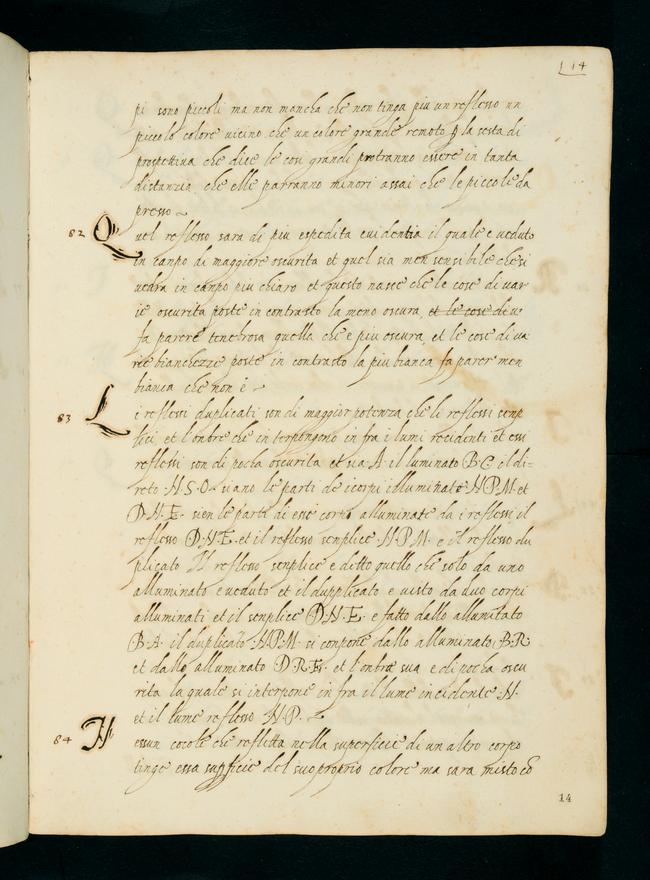 14
pi sono piccoli ma non mancha che non tinga piu un reflesso un
piccolo colore vicino che un colore grande remoto p la sesta di
prospettiua che dice le cosi grandi potranno essere in tanta
distanzia che elle parranno minori assai che le piccole da
presso
82 Quel reflesso sara di piu espedita euidentia il quale e ueduto
in canpo di maggiore oscurita et quel sia men sensibile che si
uedra in canpo piu chiaro et questo nasce che le cose di uar
ie oscurita poste in contrasto la meno oscura et le cose di u
fa parere tenebrosa quella che e piu oscura, et le cose di ua
rie bianchezze poste in contrasto la piu bianca fa parer men
bianca che non è
83 Li reflessi duplicati son di maggior potenza che li reflessi senp
lici, et l'onbre che in terpongono in fra i lumi incidenti et essi
reflessi son di pocha oscurita et sia A il luminato B.C il di=
reto N.S.O. siano le parti de icorpi illuminate N.P.M. et
D.N.E. sien le parti di esse corpi alluminate da i reflessi il
reflesso D.N.E. et il reflesso senplice N.P.M. e il reflesso du
plicato Il reflesso senplice e ditto quello che solo da uno
alluminato e ueduto et il dupplicato e uisto da duo corpi
alluminati et il senplice D.N.E. e fatto dallo allumitato
B.A. il duplicato N.P.M. si conpone dallo alluminato B.R
et dallo alluminato D.R.E. et l'onbra sua e di pocha oscu
rita la quale si interpone in fra il lume incidente N.
et il lume reflesso N.P.
84 Nessun cocole che reflitta nella superficie di un altro corpo
tinge essa supficie del suo proprio colore ma sara misto cõ
14